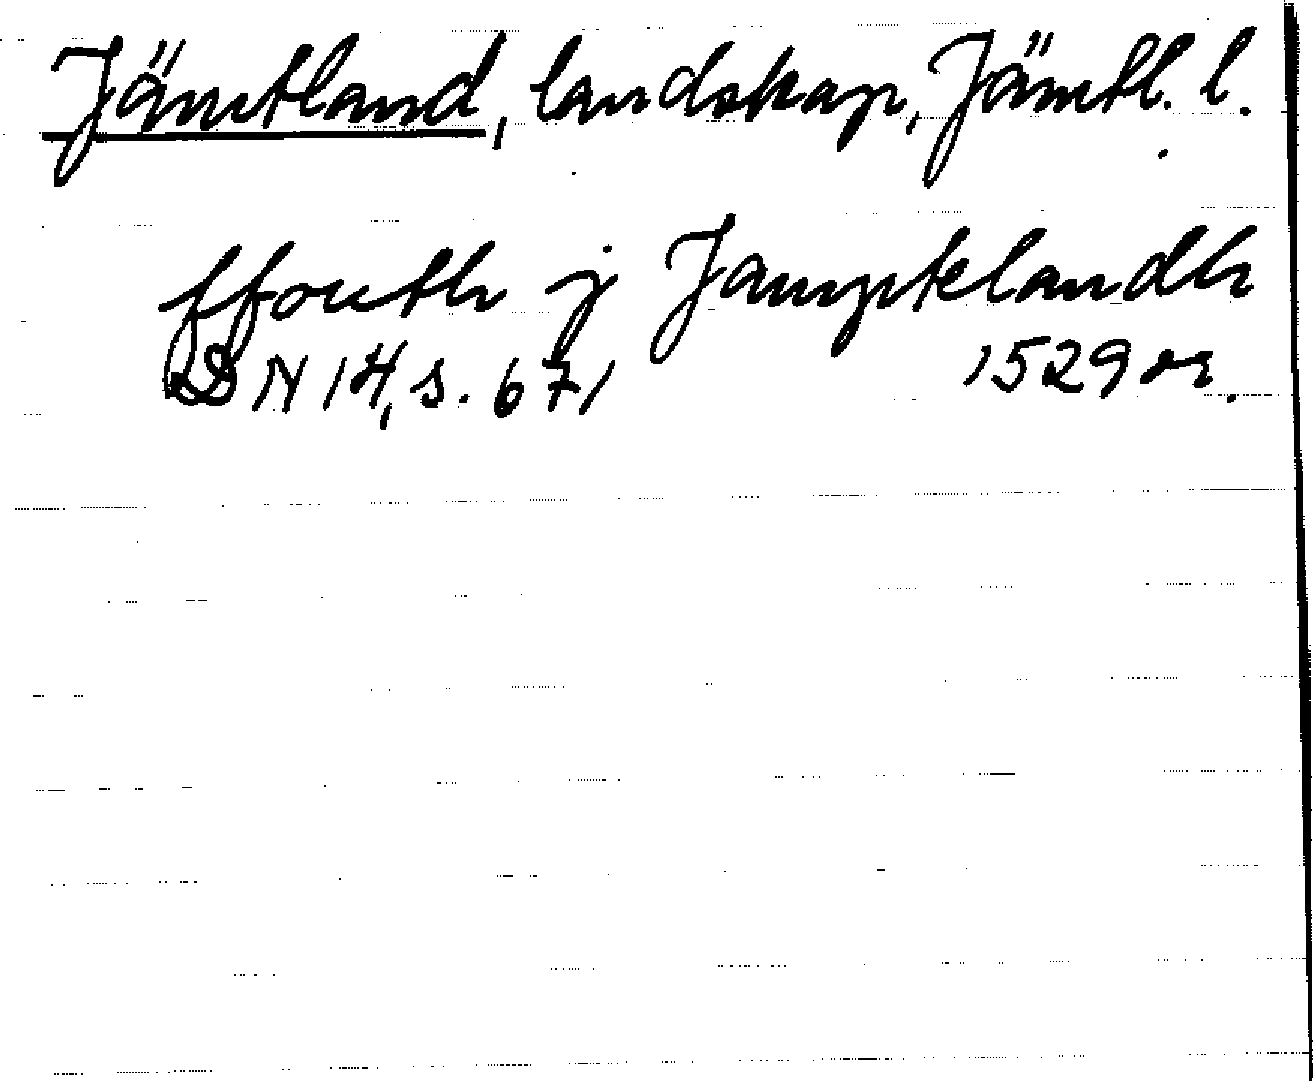 Jämtland, landskap, Jämtl. l.
ffouth j Jampktelandh
DN 14, s. 671 1529 or.